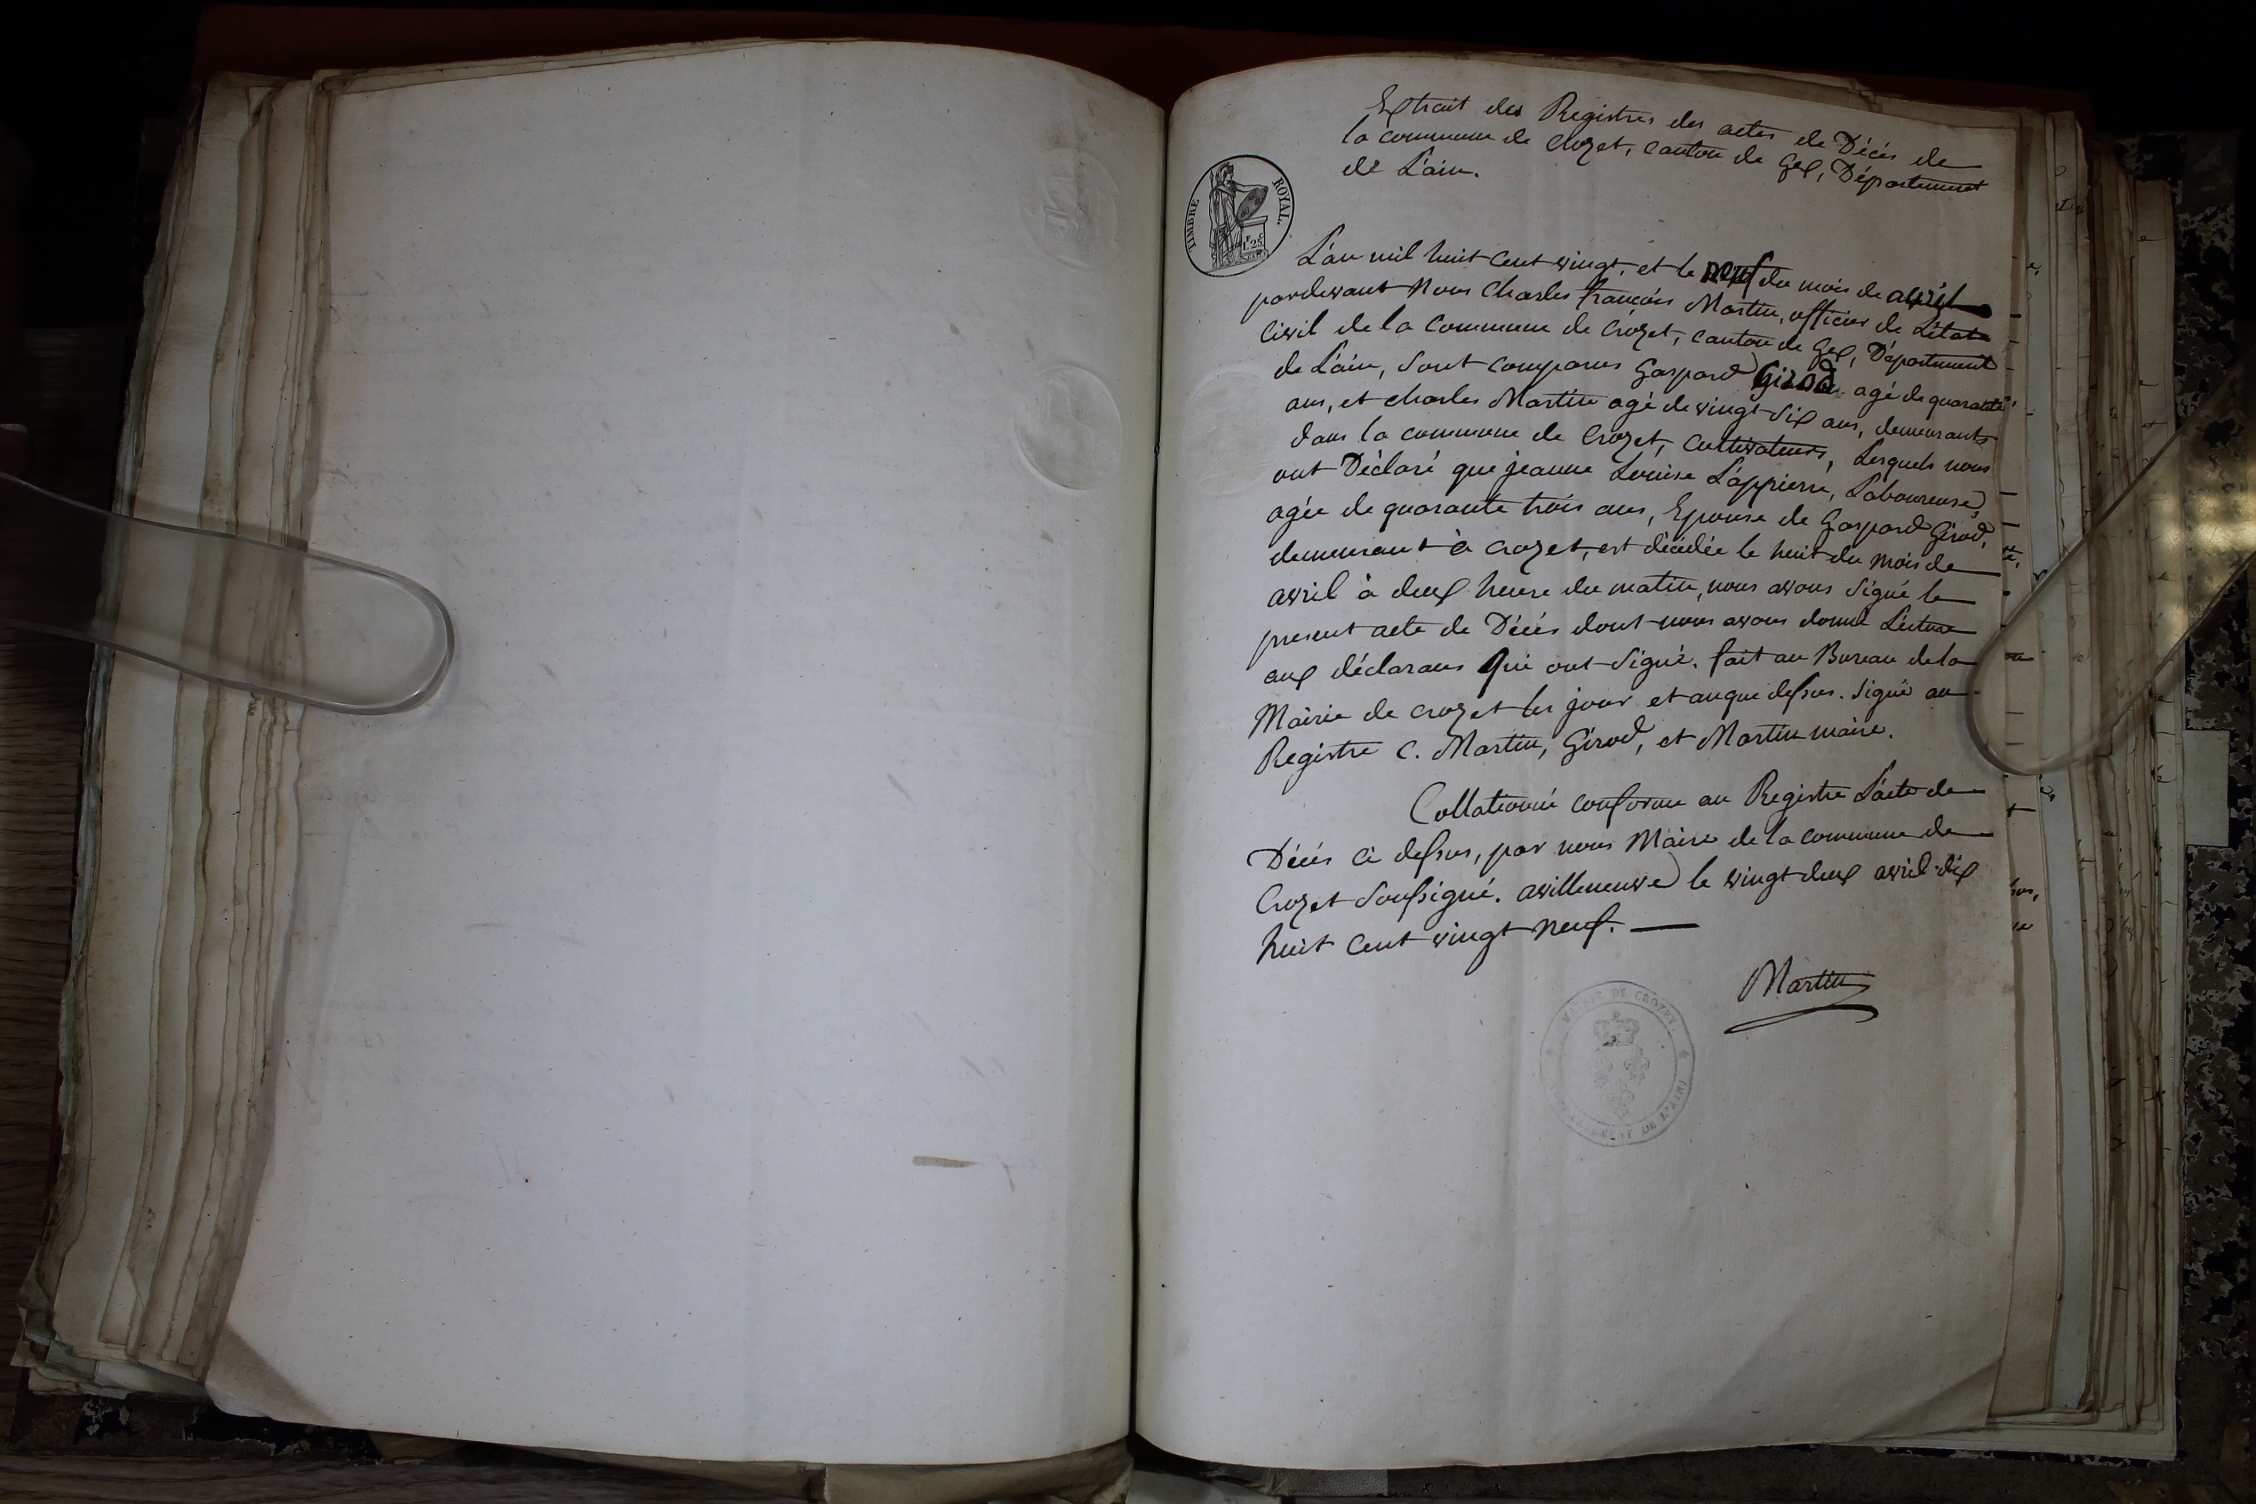 Extrait des Registres des actes de Décés de
la commune de Crozet, Canton de Gex, Département
de L'ain.
TIMBRE ROYAL.
L'an mil huit cent vingt, et le neuf du mois de avril
pardevant Nous Charles françois Martin, officier de L'état
Civil de la Commune de Crozet, canton de Gex, Département
de L'ain, sont comparus Gaspard Girod agé de quarante
ans, et Charles Martin agé de vingt six ans, demeurants
dans la commune de Crozet, Cultivateurs, Lesquels nous
ont Déclaré que jeanne Louise Lappierre, Laboureuse,
agée de quarante trois ans, Epouse de Gaspard Girod,
demeurant à Crozet, est décédée le huit du mois de
avril à deux heure du matin, nous avons signé le
present acte de Décés dont nous avons donné Lecture
aux déclarans Qui ont signé. fait au Bureau de la
Mairie de Crozet les jour et an que dessus. signé au
Registre C. Martin, Girod, et Martin maire.
Collationné conforme au Registre L'acte de
Décés ci dessus, par nous Maire de la commune de
Crozet soussigné. avilleneuve le vingt deux avril dix
huit cent vingt neuf.
Martin
MAIRIE DE CROZET.
DEPARTEMENT DE L'AIN